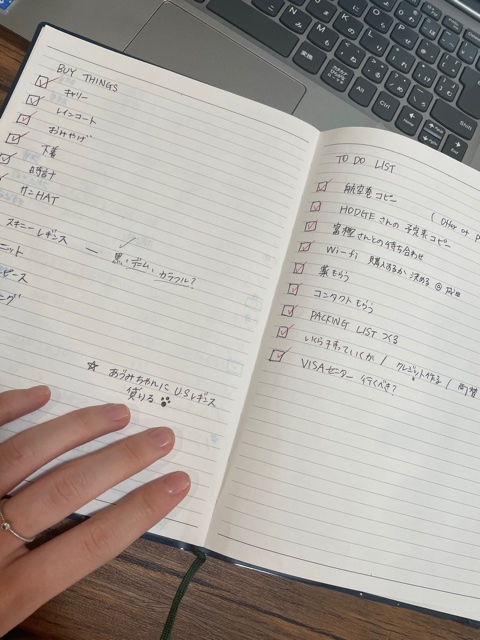 BUY THINGS
キャリー
レインコート
おみやげ
下着
時計
サンHAT
スキニーレギンス
黒、デニム、カラフル?
ニット
ピース
ング
☆ あづみちゃんに U.Sレギンス
借りる
TO DO LIST
航空巻コピー
HODGEさんの予約表コピー
富樫さんとの待ち合わせ
Wi-Fi 購入するか決める@
薬もらう
コンタクトもらう
PACKING LIST つくる
いくら持っていくか / クレジット作る / 両替
VISAセンター 行くべき?
Alt
Ctrl
Shift